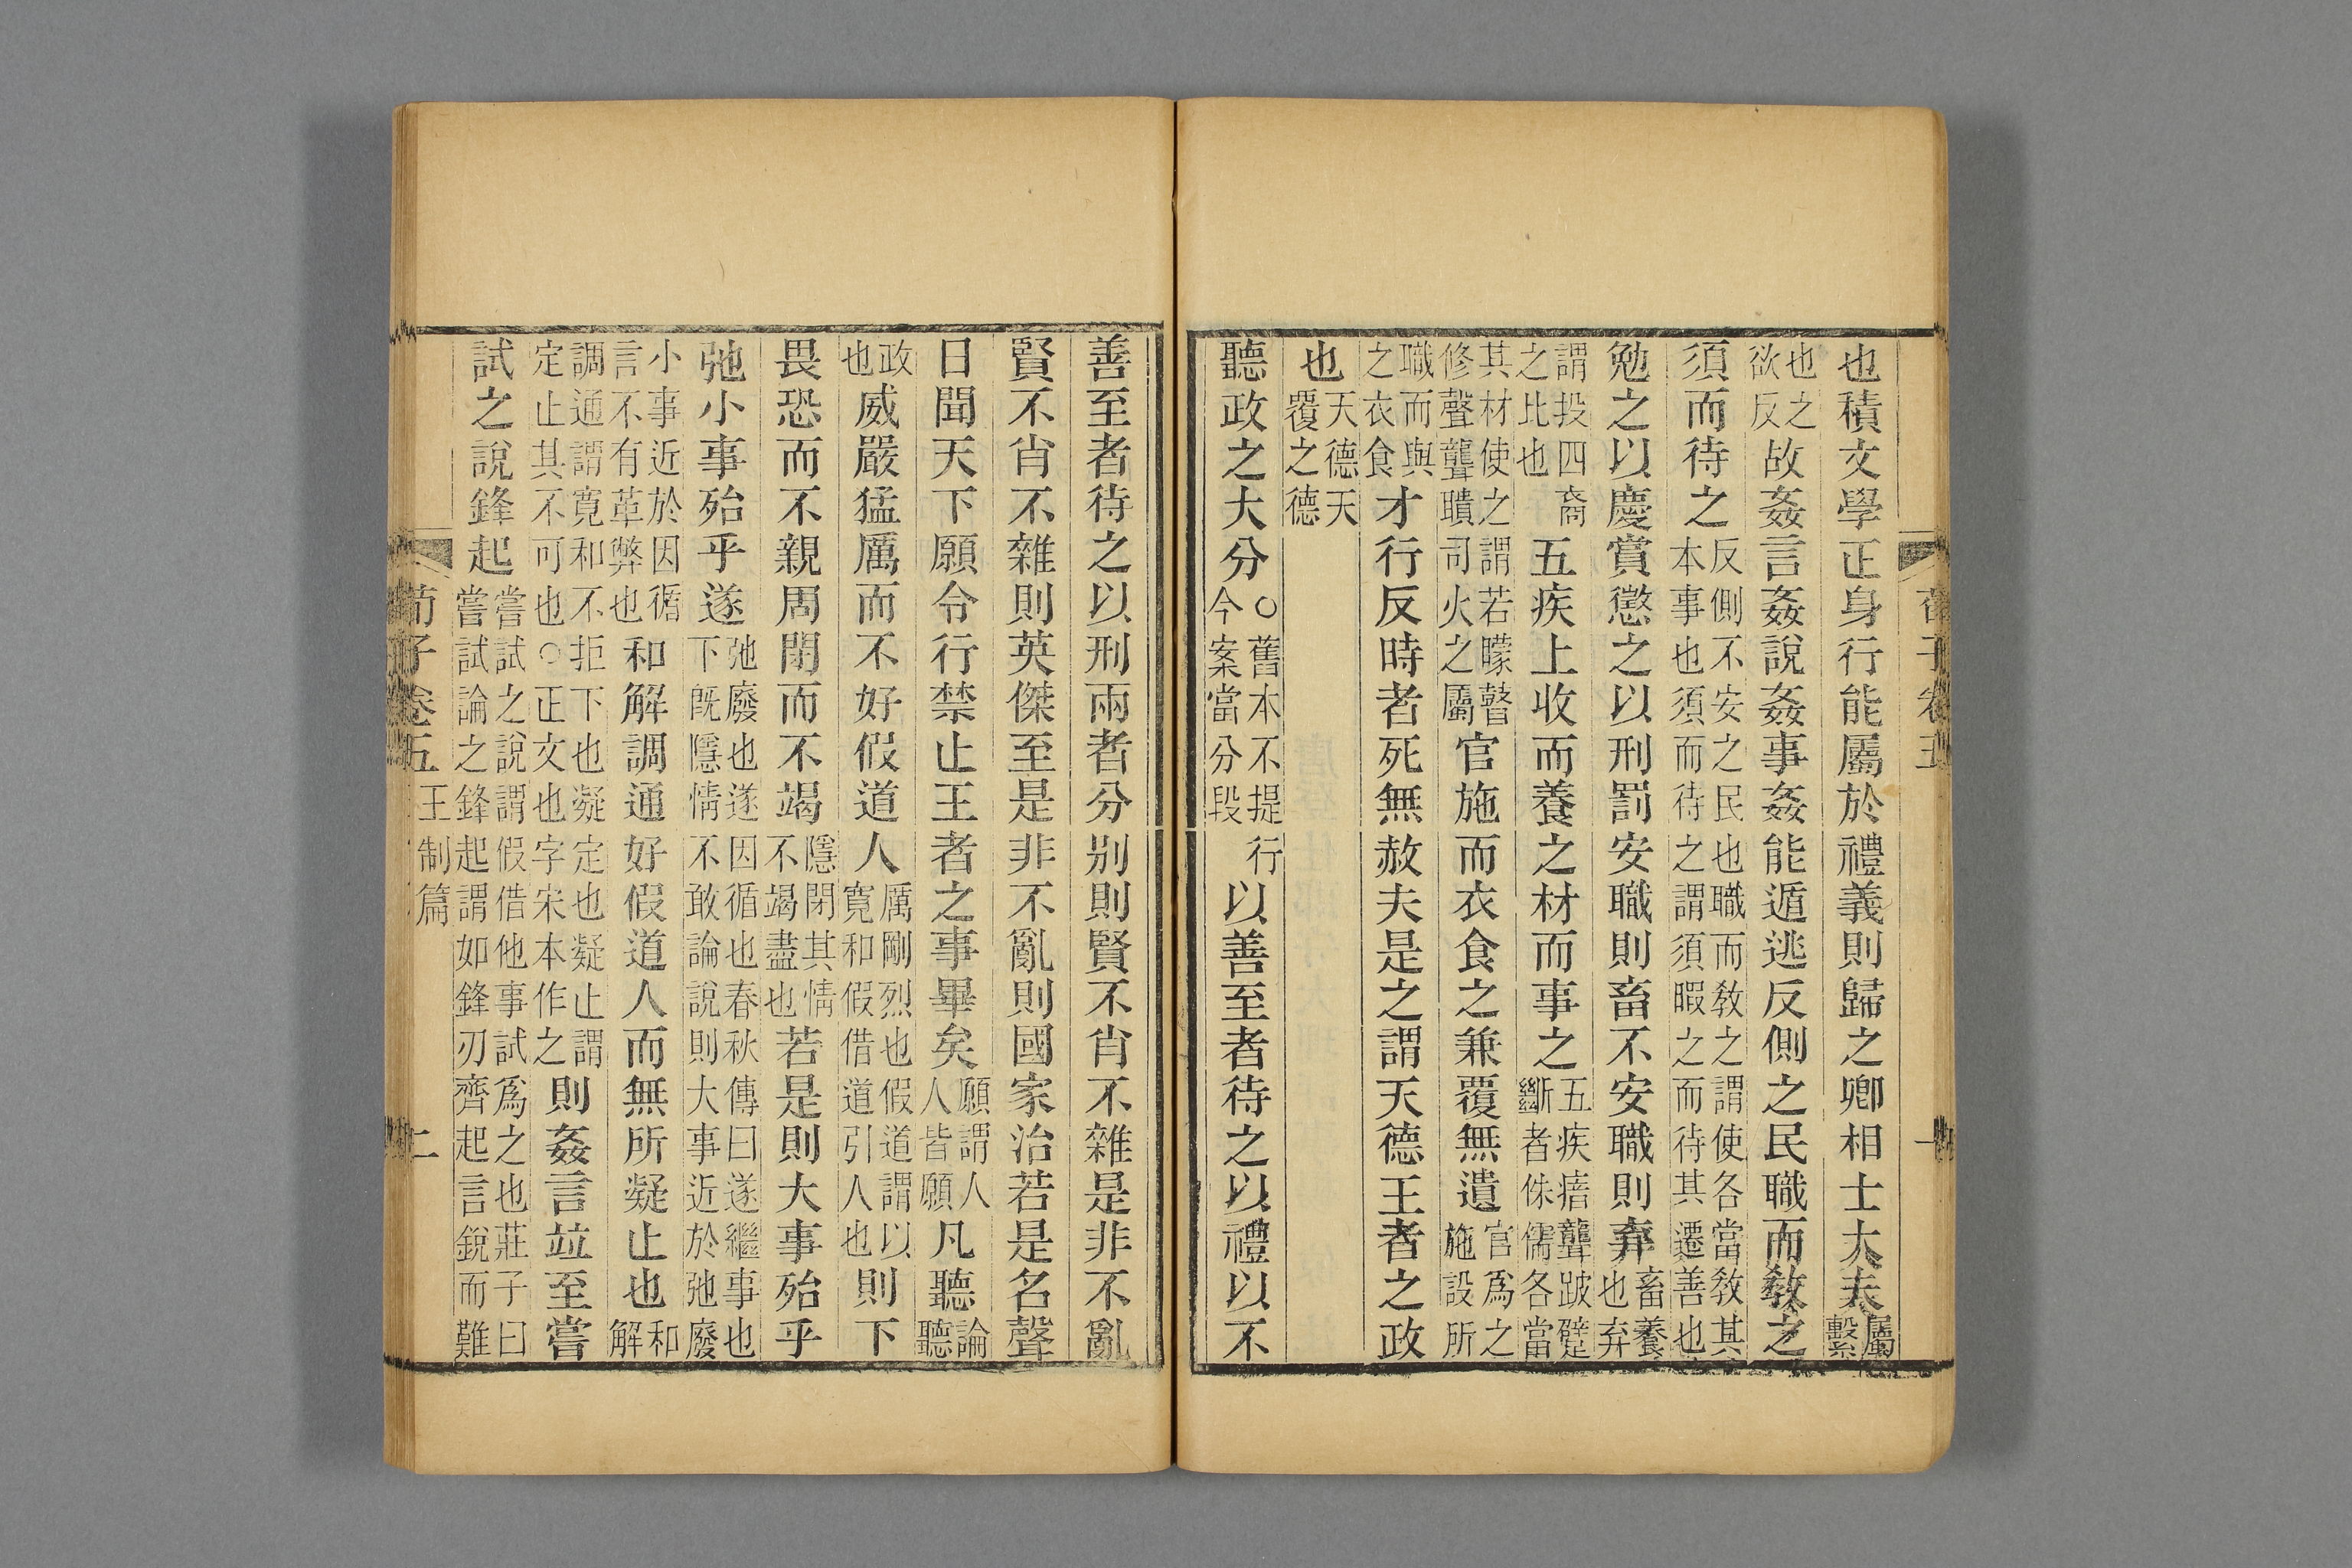 荀子卷五 一
也積文學正身行能屬於禮義則歸之卿相士大夫屬繫
也之欲反故姦言姦說姦事姦能遁逃反側之民職而敎之
須而待之反側不安之民也職而敎之謂使各當敎其本事也須而待之謂須暇之而待其遷善也
勉之以慶賞懲之以刑罰安職則畜不安職則弃畜養也弃
謂投四裔之比也五疾上收而養之材而事之五疾瘖聾跛躄斷者侏儒各當
其材使之謂若矇瞽修聲聾聵司火之屬官施而衣食之兼覆無遺官爲之施設所
職而與之衣食才行反時者死無赦夫是之謂天德王者之政
也天德天覆之德
聽政之大分○舊本不提行今案當分段以善至者待之以禮以不
善至者待之以刑兩者分别則賢不肖不雜是非不亂
賢不肖不雜則英傑至是非不亂則國家治若是名聲
日聞天下願令行禁止王者之事畢矣願謂人人皆願凡聽論聽
政也威嚴猛厲而不好假道人厲剛烈也假道謂以寬和假借道引人也則下
畏恐而不親周閉而不竭隱閉其情不竭盡也若是則大事殆乎
弛小事殆乎遂弛廢也遂因循也春秋傳曰遂繼事也下旣隱情不敢論說則大事近於弛廢
小事近於因循言不有革弊也和解調通好假道人而無所凝止也和解
調通謂寬和不拒下也凝定也凝止謂定止其不可也○正文也字宋本作之則姦言竝至嘗
試之說鋒起嘗試之說謂假借他事試爲之也莊子曰嘗試論之鋒起謂如鋒刃齊起言銳而難
荀子卷五 王制篇 二